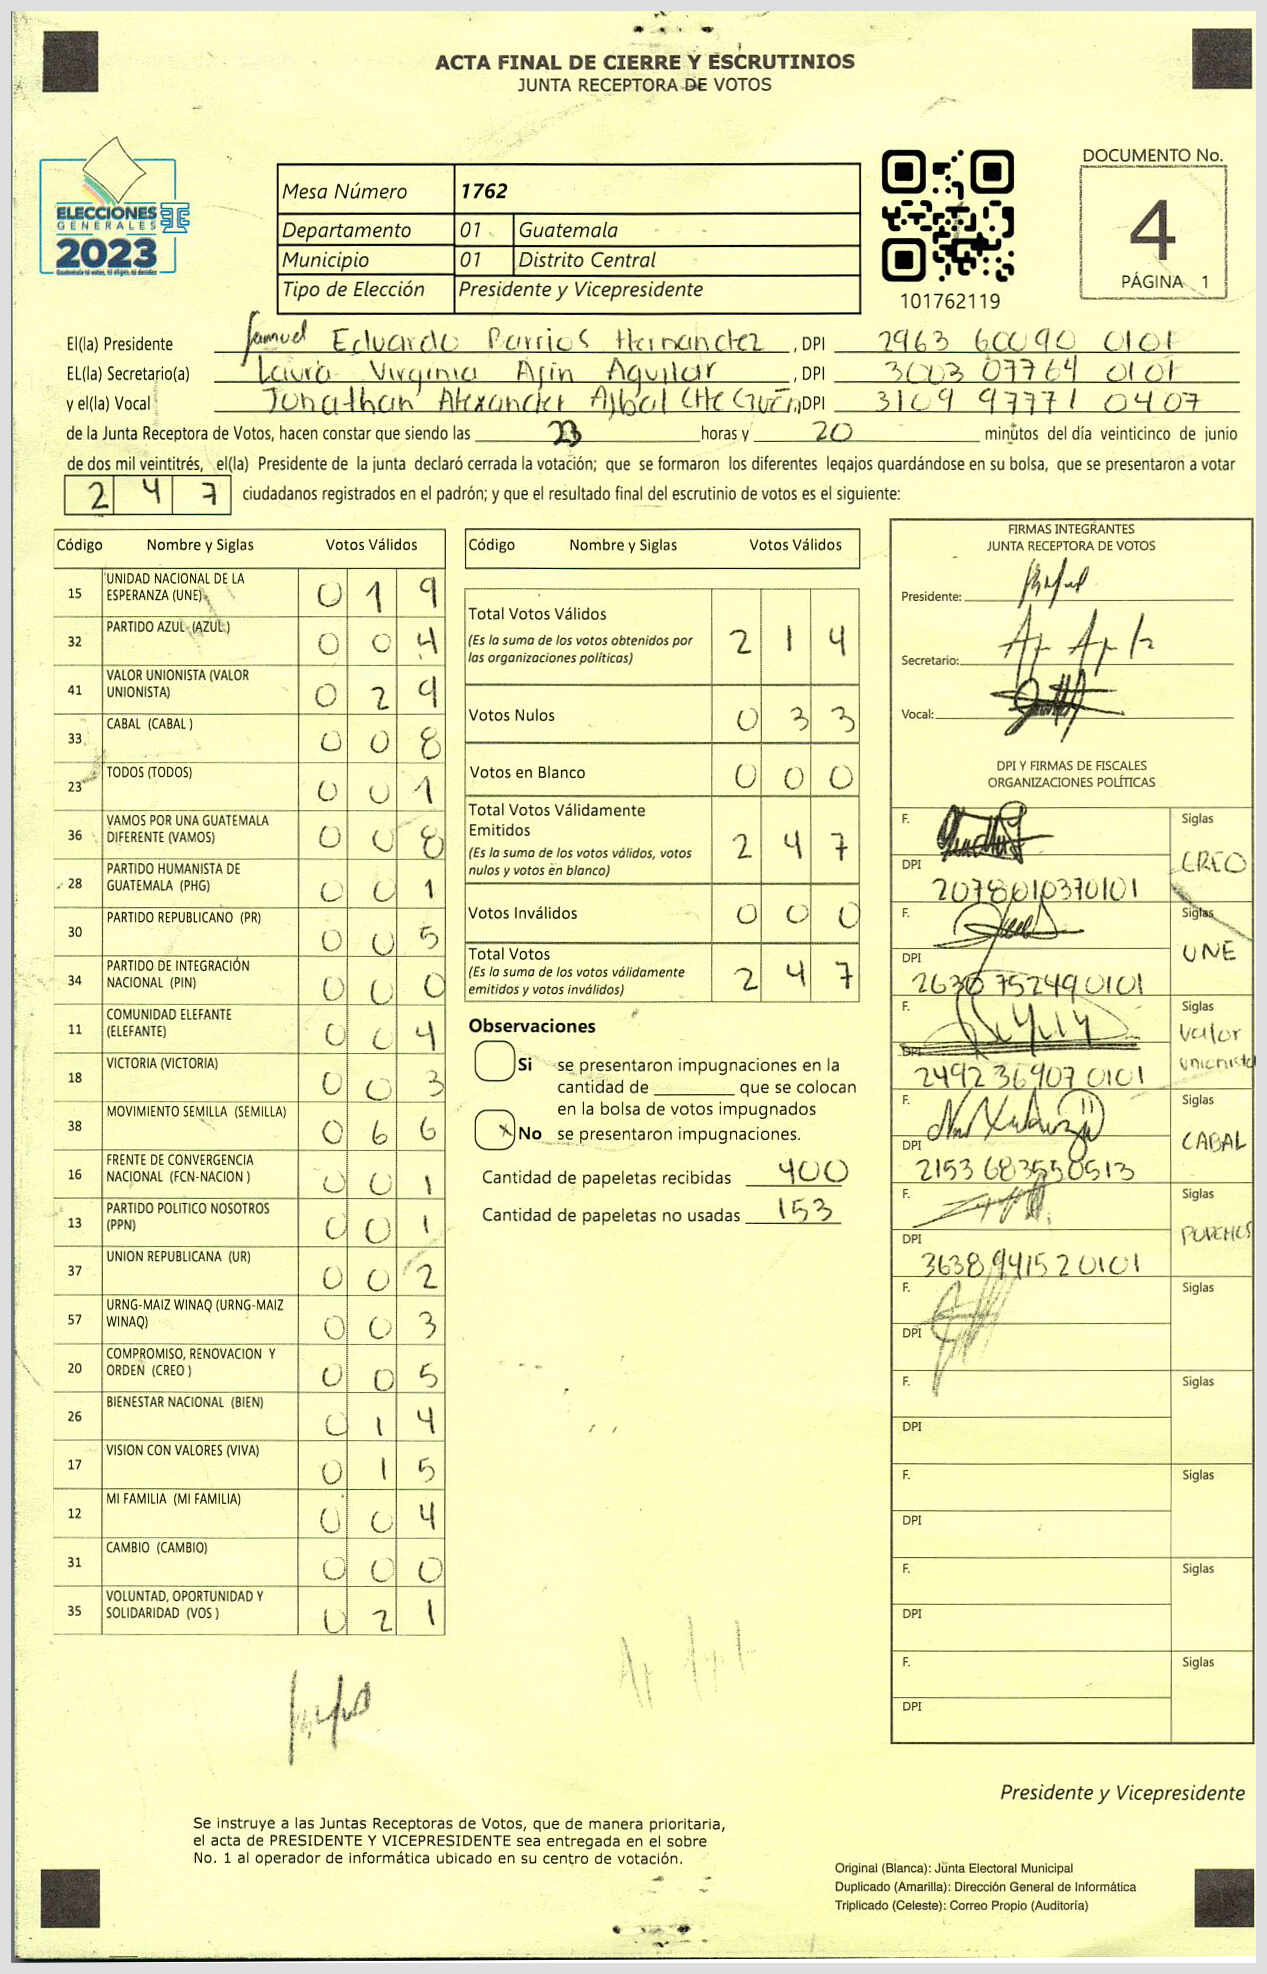 ACTA FINAL DE CIERRE Y ESCRUTINIOS
JUNTA RECEPTORA DE VOTOS
ELECCIONES
GENERALES
2023
Guatemala tú votas, tú eliges, tú decides
Mesa Número 1762
Departamento 01 Guatemala
Municipio 01 Distrito Central
Tipo de Elección Presidente y Vicepresidente
101762119
DOCUMENTO No.
4
PÁGINA 1
El(la) Presidente Samuel Eduardo Barrios Hernandez, DPI 2963 60090 0101
EL(la) Secretario(a) Laura Virginia Ajin Aguilar, DPI 3003 07764 0101
y el(la) Vocal Jonathan Alexander DPI 3109 97771 0407
de la Junta Receptora de Votos, hacen constar que siendo las 23 horas y 20 minutos del día veinticinco de junio
de dos mil veintitrés, el(la) Presidente de la junta declaró cerrada la votación; que se formaron los diferentes legajos guardándose en su bolsa, que se presentaron a votar
247 ciudadanos registrados en el padrón; y que el resultado final del escrutinio de votos es el siguiente:
Código Nombre y Siglas Votos Válidos
15 UNIDAD NACIONAL DE LA ESPERANZA (UNE) 0 1 9
32 PARTIDO AZUL (AZUL) 0 0 4
41 VALOR UNIONISTA (VALOR UNIONISTA) 0 2 9
33 CABAL (CABAL) 0 0 8
23 TODOS (TODOS) 0 0 1
36 VAMOS POR UNA GUATEMALA DIFERENTE (VAMOS) 0 0 8
28 PARTIDO HUMANISTA DE GUATEMALA (PHG) 0 0 1
30 PARTIDO REPUBLICANO (PR) 0 0 5
34 PARTIDO DE INTEGRACIÓN NACIONAL (PIN) 0 0 0
11 COMUNIDAD ELEFANTE (ELEFANTE) 0 0 4
18 VICTORIA (VICTORIA) 0 0 3
38 MOVIMIENTO SEMILLA (SEMILLA) 0 6 6
16 FRENTE DE CONVERGENCIA NACIONAL (FCN-NACION) 0 0 1
13 PARTIDO POLITICO NOSOTROS (PPN) 0 0 1
37 UNION REPUBLICANA (UR) 0 0 2
57 URNG-MAIZ WINAQ (URNG-MAIZ WINAQ) 0 0 3
20 COMPROMISO, RENOVACION Y ORDEN (CREO) 0 0 5
26 BIENESTAR NACIONAL (BIEN) 0 1 4
17 VISION CON VALORES (VIVA) 0 1 5
12 MI FAMILIA (MI FAMILIA) 0 0 4
31 CAMBIO (CAMBIO) 0 0 0
35 VOLUNTAD, OPORTUNIDAD Y SOLIDARIDAD (VOS) 0 2 1
Código Nombre y Siglas Votos Válidos
Total Votos Válidos 2 1 4
(Es la suma de los votos obtenidos por
las organizaciones políticas)
Votos Nulos 0 3 3
Votos en Blanco 0 0 0
Total Votos Válidamente
Emitidos 2 4 7
(Es la suma de los votos válidos, votos
nulos y votos en blanco)
Votos Inválidos 0 0 0
Total Votos 2 4 7
(Es la suma de los votos válidamente
emitidos y votos inválidos)
Observaciones
Si se presentaron impugnaciones en la
cantidad de ________ que se colocan
en la bolsa de votos impugnados
x No se presentaron impugnaciones.
Cantidad de papeletas recibidas 400
Cantidad de papeletas no usadas 153
FIRMAS INTEGRANTES
JUNTA RECEPTORA DE VOTOS
Presidente:
Secretario:
Vocal:
DPI Y FIRMAS DE FISCALES
ORGANIZACIONES POLÍTICAS
F. Siglas CREO
DPI 2078010370101
F. Siglas UNE
DPI 2630752490101
F. Siglas Valor unionista
DPI 2492369070101
F. Siglas CABAL
DPI 2153683550513
F. Siglas PODEMOS
DPI 3638941520101
F. Siglas
DPI
F. Siglas
DPI
F. Siglas
DPI
F. Siglas
DPI
F. Siglas
DPI
Presidente y Vicepresidente
Se instruye a las Juntas Receptoras de Votos, que de manera prioritaria,
el acta de PRESIDENTE Y VICEPRESIDENTE sea entregada en el sobre
No. 1 al operador de informática ubicado en su centro de votación.
Original (Blanca): Junta Electoral Municipal
Duplicado (Amarilla): Dirección General de Informática
Triplicado (Celeste): Correo Propio (Auditoría)